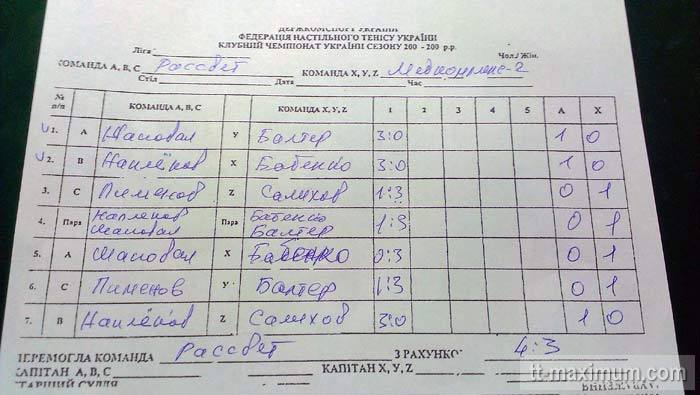 ДЕРЖКОМСПОРТ УКРАЇНИ
ФЕДЕРАЦІЯ НАСТІЛЬНОГО ТЕНІСУ УКРАЇНИ
КЛУБНИЙ ЧЕМПІОНАТ УКРАЇНИ СЕЗОНУ 200 -200 р.р.
Ліга Чол./ Жін.
КОМАНДА А, В, С Рассвет КОМАНДА X, У, Z Медкомплекс-2
Стіл Дата Час
№ п/п КОМАНДА А, В, С КОМАНДА X, У, Z 1 2 3 4 5 А X
1. А Шаповал У Балтер 3:0 1 0
2. В Наплёков X Бабенко 3:0 1 0
3. С Пименов Z Салихов 1:3 0 1
4. Пара Наплёков Шаповал Пара Бабенко Балтер 1:3 0 1
5. А Шаповал X Бабенко 0:3 0 1
6. С Пименов У Балтер 1:3 0 1
7. В Наплёков Z Салихов 3:0 1 0
ПЕРЕМОГЛА КОМАНДА Рассвет З РАХУНКОМ 4:3
КАПІТАН А, В, С КАПІТАН X, У, Z
СТАРШИЙ СУДДЯ
tt-maximum.com